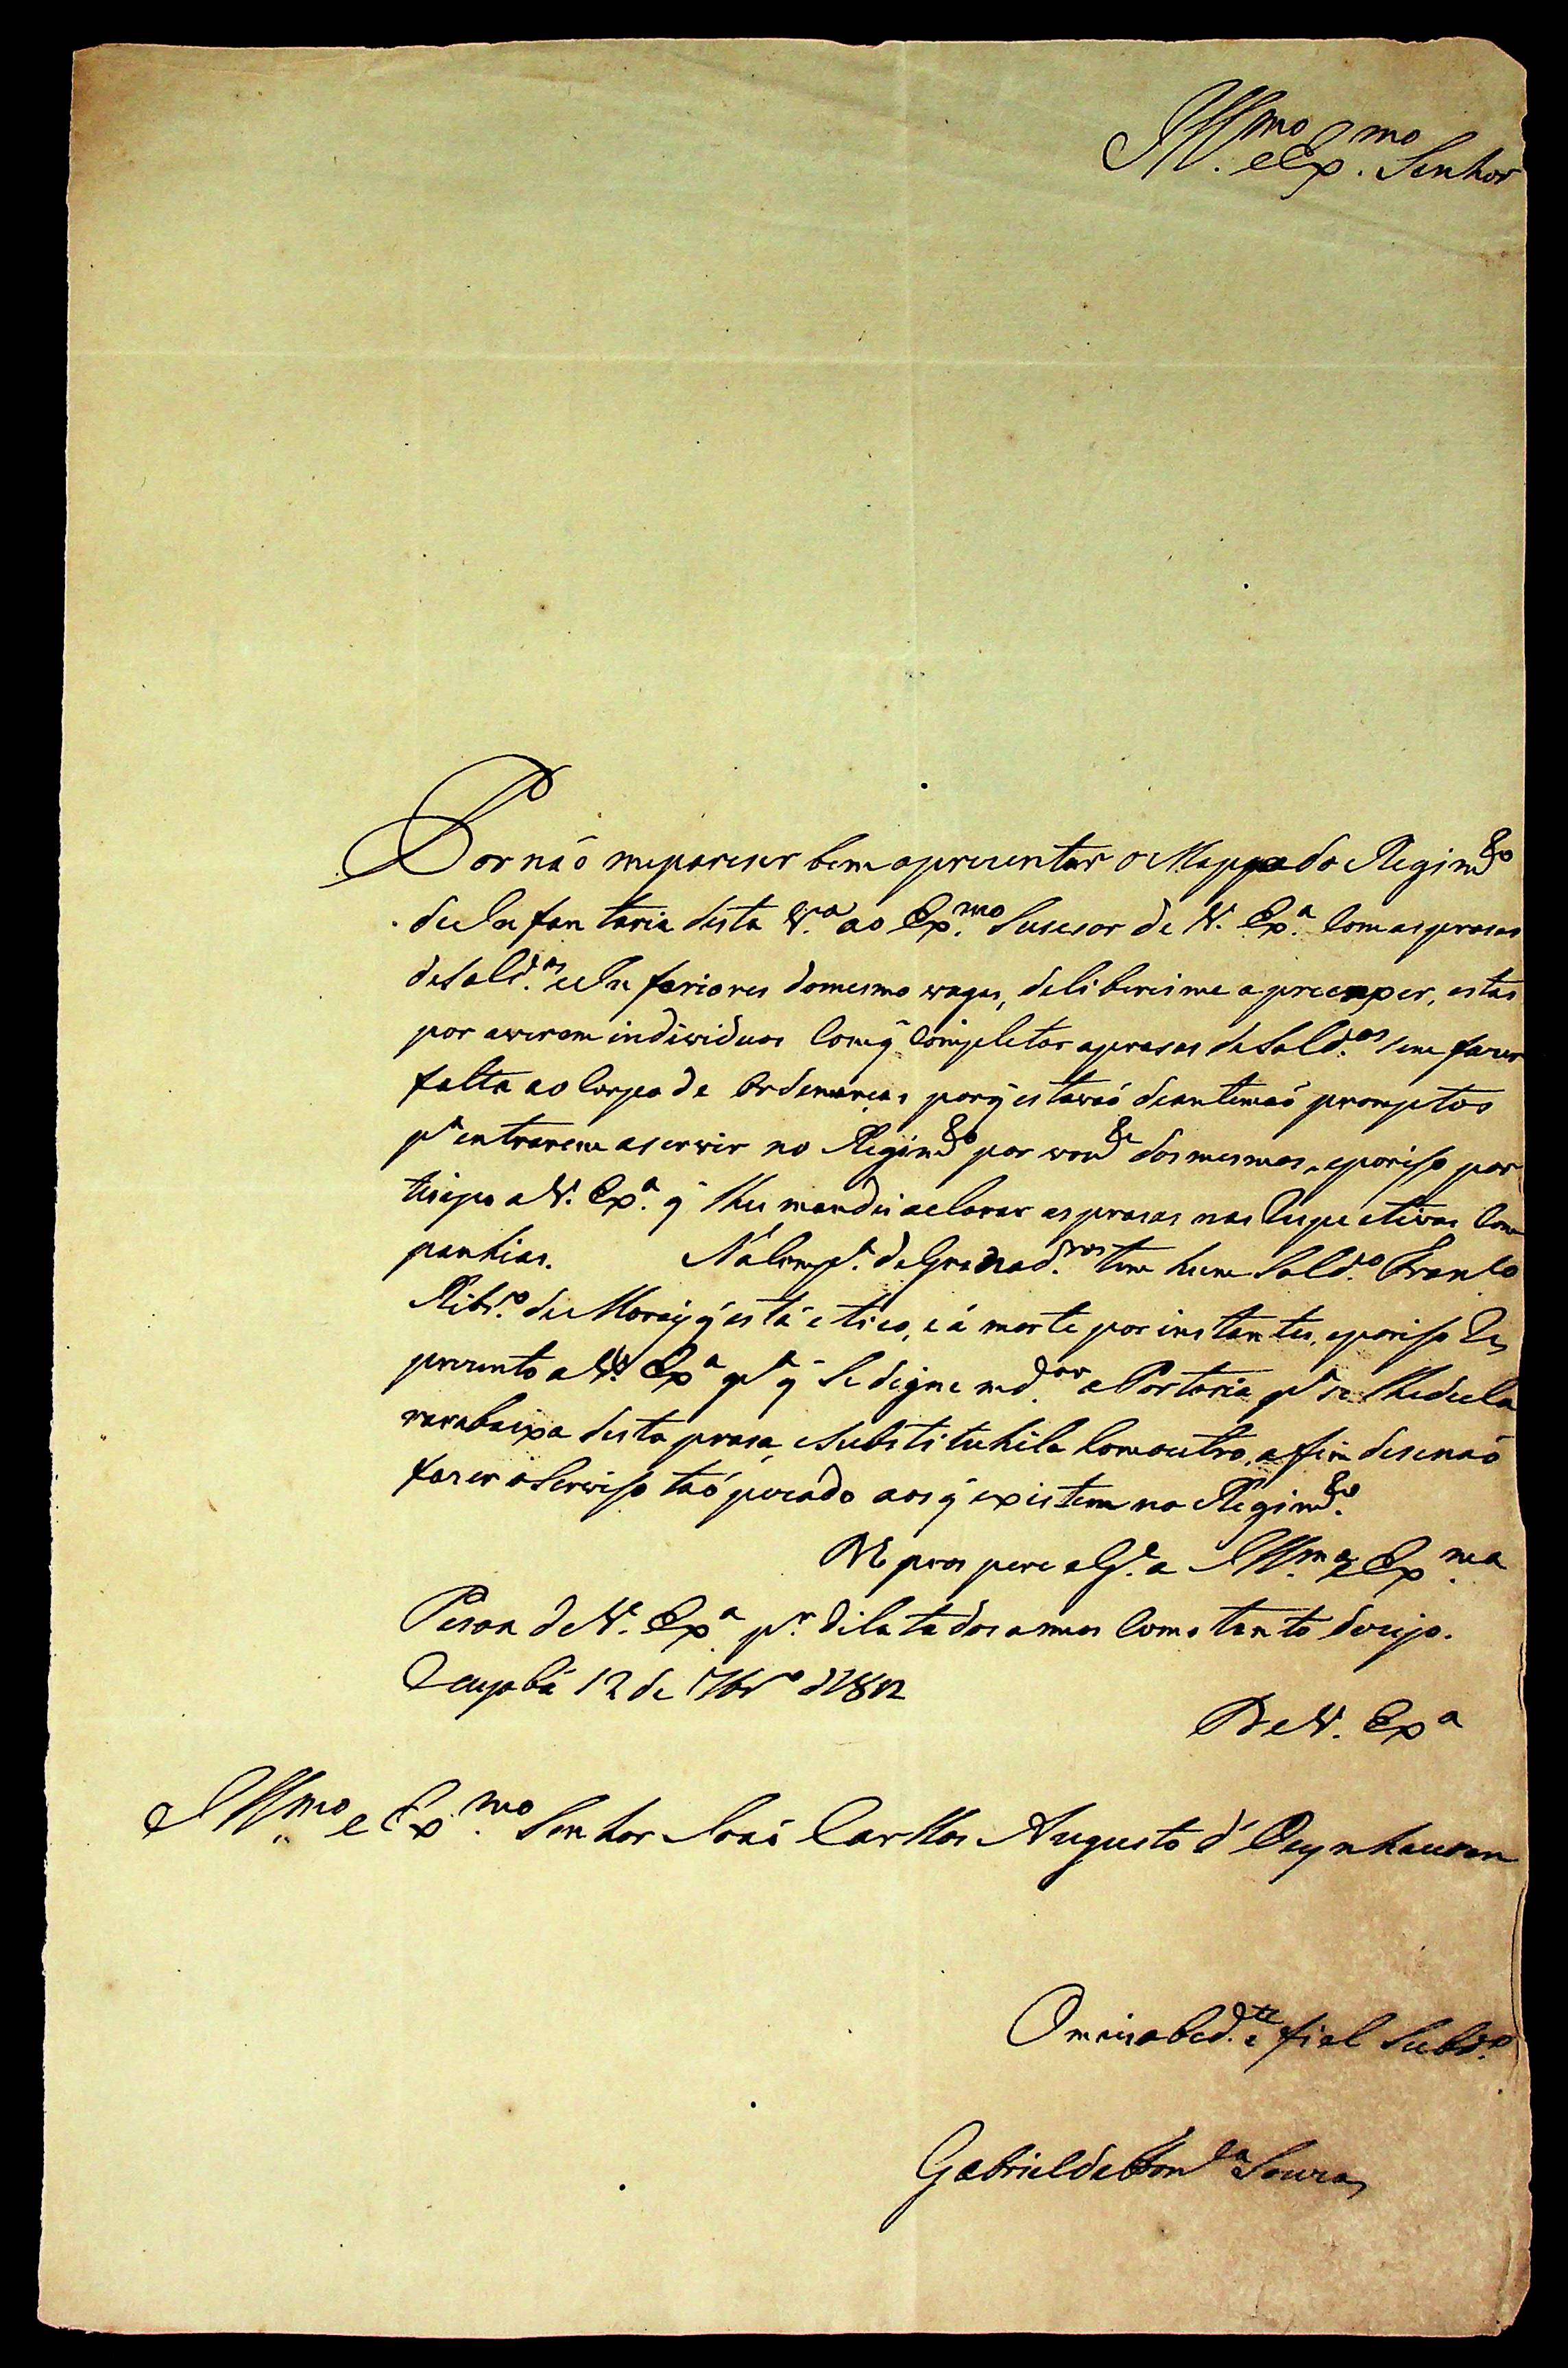 Ill.mo e Ex.mo Senhor
Por naó mepareser bem aprezentar o Mappa do Regim.to
de Infantaria desta V.a ao Ex.mo Susesor de V. Ex.a Com as prasas
de Sald.os e Inferiores do mesmo vagas, deliberei me a preemxer, estas
por averem individuos Com q̃ Completar a prasas de Sold.os sem fazer
falta ao Corpo de Ordenanças porq̃ estavaó deantemaó promptos
p.a entrarem a servir no Regim.to por vont.e dos mesmos, e poriso par
tisipo a V. Ex.a q̃ lhes mandei aclarar as prasas nas Respectivas Com
panhias. Na Comp.a de Granad.ros tem hum Sold.o Fran.co
Ribr.o de Moraiz q̃ está etico, e á morte por instantes, e poriso Re
prezento a V. Ex.a p.a q̃ Se digne md.ar a Portaria p.a se lhe decla
rar abaixa desta prasa, e Substituhila Com outro, afim de se naó
fazer o Serviso taó pezado aos q̃ existem no Regim.to
D.E prospere e G.e a Ill.ma e Ex.ma
Pesoa de V. Ex.a p.r dilatados annos Como tanto dezejo.
Cuyabá 12 de 9br.o d
De V. Ex.a
Ill.mo e Ex.mo Senhor Joaó Carllos Augusto d' Oeynhausen
O mais obed.te e fiel Subd.o
Gabriel da Souza